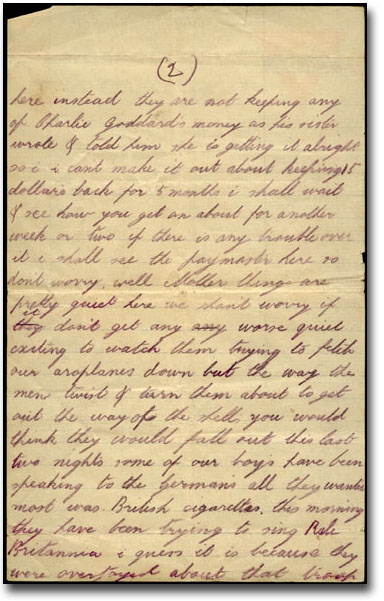 (2)
here instead they are not keeping any
of Charlie Goddards money as his sister
wrote & told him she is getting it alright
so i i cant make it out about keeping 15
dollars back for 5 months i shall wait
& see how you get on about for another
week or two if there is any trouble over
it i shall see the paymaster here so
dont worry, well Mother things are
pretty quiet here we shant worry if
it dont get any any worse quiet
exiting to watch them trying to fetch
our aroplanes down but the way the
men twist & turn them about to get
out the way of the shell, you would
think they would fall out this last
two nights some of our boys have been
speaking to the Germans all they wanted
most was British cigarettes, this morning
they have been trying to sing Rule
Britannia i guess it is because they
were overjoyed about that troop